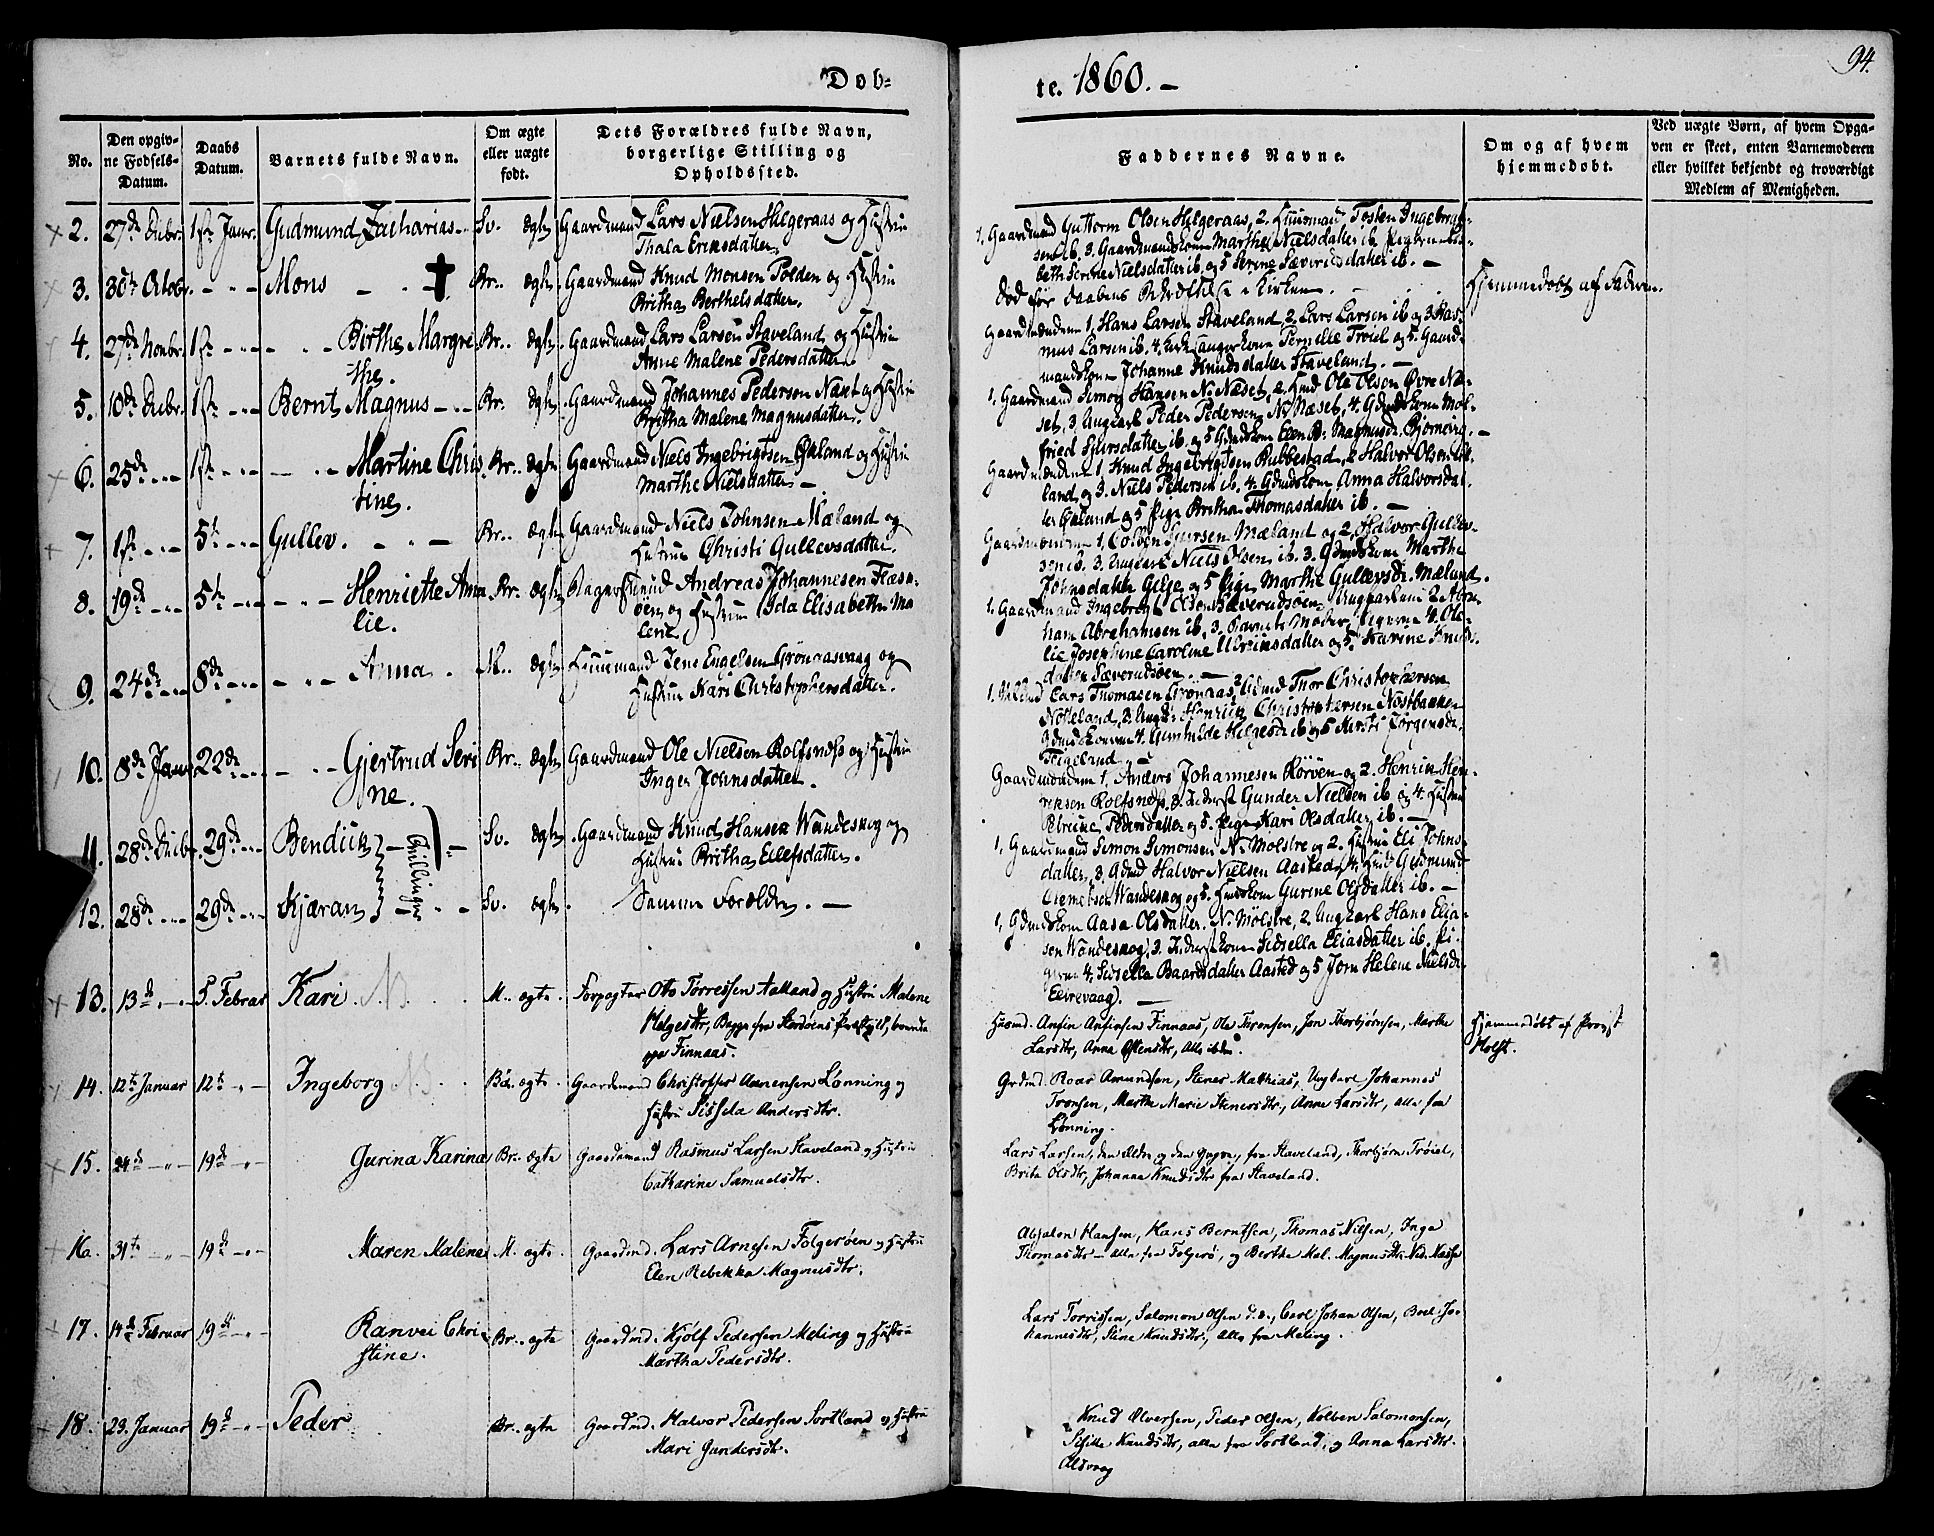 94.
Døb-
te. 1860. –
No.
Den opgiv-
ne Fødsels-
Datum.
Daabs
Datum.
Barnets fulde Navn.
Om ægte
eller uægte
født.
Dets Forældres fulde Navn,
borgerlige Stilling og
Opholdssted.
Faddernes Navne.
Om og af hvem
hjemmedøbt.
Ved uægte Børn, af hvem Opga-
ven er skeet, enten Barnemoderen
eller hvilket bekjendt og troværdigt
Medlem af Menigheden.
2. 27de Decbr. 1ste Janr. Gudmund Zacharias Sv. ægte Gaardmand Lars Nielsen Helgeraas og Hustru
Thala Eriksdatter.
1, Gaardmand Guttorm Olsen Helgeraas, 2. Huusmand Tosten Ingebrigt-
sen ib. 3. Gaardmandskone Marthe Nielsdatter ib.
beth Serine Nielsdatter ib. og 5 Serine Sæverudsdatter ib. –
3. 30te Octobr. Mons Br. ægte Gaardmand Knud Monsen Polden og Hustru
Britha Berthelsdatter.
Død før Daabens i Kirken.
Hjemmedøbt af Faderen.
4. 27de Novbr. 1ste Birthe Margre-
the. Br. ægte Gaardmand Lars Larsen Staveland og Hustru
Anne Malene Pedersdatter
Gaardmændene 1, Hans Larsen Staveland 2. Lars Larsen ib og 3 Ras-
mus Larsen ib. 4. Pernelle Trøiel og 5. Gaard-
mandskone Johanne Knudsdatter Staveland. –
5. 10de Decbr. 1ste Bernt Magnus Br. ægte Gaardmand Johannes Pedersen Næset og Hustru
Britha Malene Magnusdatter.
1, Gaardmand Simon Hansen N. Næset, 2. Ole Olsen Øvre Næ-
set, 3. Ungkarl Peder Pedersen N. Næset, 4. Gdmdskone Mol-
fried Sjursdatter ib. og 5 Gdmdskone Elen B. Magnusdr. –
6. 25de 1ste Martine Chris-
tine. Br. ægte Gaardmand Niels Ingebrigtsen Økland og Hustru
Marthe Nielsdatter –
Gaardmændene 1, Knud Ingebrigtsen Bubbestad, 2 Halvor Olsen Øk-
land, og 3. Niels Pedersen ib. 4. Gdmdskone Anna Halvorsdat-
ter Økland og 5 Pige Britha Thomasdatter ib. –
7. 1ste 5te Gullev. Br. ægte Gaardmand Niels Johnsen Mæland og
Hustru Christi Gullevsdatter.
Gaardmændene 1, Colben Sjursen Mæland og 2, Halvor Gullev-
sen ib. 3. Ungkarl Niels Olsen ib. 3. Gdmdskone Marthe
Johnsdatter Gilje og 5 Pige Marthe Gullevsdr. Mæland.
8. 19de 5te Henriette Ama-
lie. Br. ægte Andreas Johannesen Flæsø-
øen og Hustru Ida Elisabeth Ma-
lene
1. Gaardmand Ingebrigt Olsen Sæverudsøen, Ungkarlene 2 Abra-
ham Abrahamsen ib, 3. Barnets Moder, Pigerne 4. Ole-
lie Josephine Caroline Ulriksdatter og 5. Karine Knuds-
datter Sæverudsøen. –
9. 24de 8de Anna M. ægte Huusmand Jens Engelsen Grønaasvaag og
Hustru Kari Christophersdatter.
1. Lars Thomasen Grønaas, 2 Gdmd Thor Christophersen
Nøtteland, 3. Ungk. Henrik Christophersen Nøstbakken
Gdmdskonerne 4. Gunnilde Helgesdr ib og 5 Kirsti Jørgensdr.
Teigeland –
10. 8de Janr. 22de Gjertrud Seri-
ne. Br. ægte Gaardmand Ole Nielsen Rolfsnæss og Hustru
Inger Johnsdatter.
Gaardmændene 1, Anders Johannesen Rørven og 2. Henrik Hen-
riksen Rolfsnæss, 3. Gunder Nielsen ib og 4. Hustru
Oleriane Pedersdatter og 5. Pige Kari Olsdatter ib. –
11. 28de Decbr. 29de Bendick Sv. ægte Gaardmand Knud Hansen Wandeskog og
Hustru Britha Eilefsdatter.
1, Gaardmand Simon Simonsen N. Molstre og 2. Hustru Eli Johns-
datter, 3. Gdmd Halvor Nielsen Aasted, 4. Gudmund
Clemetsen Wandeskog og 5. Gurine Olsdatter ib. –
Tvillinger
12. 28de 29de Kjøran Sv. ægte. Samme Forældre. –
1, Gdmdskone Aasa Olsdatter N. Molstre, 2. Ungkarl Hans Elia-
sen Wandeskog, 3. Sidsella Eliasdatter ib. Pi-
gerne 4. Sidsella Baardsdatter Aasted og 5 Jorn Helene Nielsdr
Eirevaag. –
13. 13de 5. Februar Kari. NB. M. ægte. Forpagter Otto Torressen Aalland og Hustru Malene
Helgesdtr, Begge fra Stordøens Præstgjld, boende
paa Finnaas.
Husmd. Anfin Anfinsen Finnaas, Ole Tronsen, Jon Thorbjørnsen, Marthe
Larsdtr, Anna Østensdtr, alle ibdm.
Hjemmedøbt af Provst
Holst.
14. 12te Januar 12te Ingeborg NB Bø. ægte. Gaardmand Christoffer Aamensen Lønning og
Hustru Sissela Andersdtr.
Grdmd. Roar Amundsen, Stener Mathias, Ungkarl Johannes
Tronsen, Marthe Marie Stenersdtr, Anne Larsdtr, alle fra
Lønning.
15. 24de 19de Gurina Karina Br. ægte Gaardmand Rasmus Larsen Staveland og Hustru
Catharine Samuelsdtr.
Lars Larsen, den Ældre og den Yngre, fra Staveland, Thorbjørn Trøiel,
Brita Olsdtr, Johanna Knudsdtr fra Staveland.
16. 31te 19de Maren Malene M. ægte. Gaardmd. Lars Arnesen Folgerøen og Hustru
Elen Rebekka Magnusdtr.
Absalon Hansen, Hans Berntsen, Thomas Nilsen, Inga
Thomasdtr – alle fra Folgerø, og Bertha Mal. Magnusdtr, Ned. Næsse
17. 14de Februar 19de Ranvei Chri-
stine. Br. ægte Gaardmd. Kjølf Pedersen Meling og Hustru
Martha Pedersdtr.
Lars Torrissen, Salomon Olsen d. æ., Carl Johan Olsen, Boel Jo-
hannesdtr, Stine Knudsdtr, alle fra Meling.
18. 23. Januar 19de Peder Br. ægte Gaardmd. Halvor Pedersen Sortland og Hustru
Mari Gundersdtr.
Knud Alversen, Peder Olsen, Kolben Salomonsen,
Sisilla Knudsdtr, alle fra Sortland, og Anna Larsdtr
Alsvaag